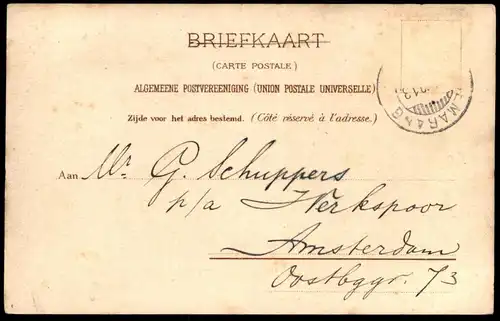 BRIEFKAART
(CARTE POSTALE)
ALGEMEENE POSTVEREENIGING (UNION POSTALE UNIVERSELLE)
Zijde voor het adres bestemd. (Côté réservé à l'adresse.)
Aan Mr. G. Schuppers
p/a Werkspoor
Amsterdam
Oostbggr. 73